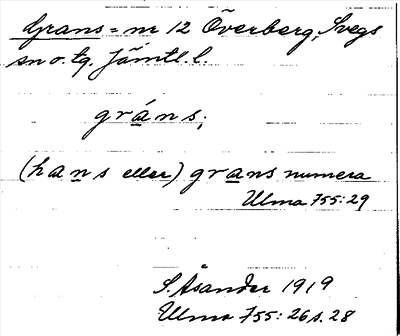 Grans = nr 12 Överberg, Svegs
sn o. tg. Jämtl. l.
gráns;
(hans eller) grans numera
Ulma 755:29
S. Åsander 1919
Ulma 755: 26 s. 28